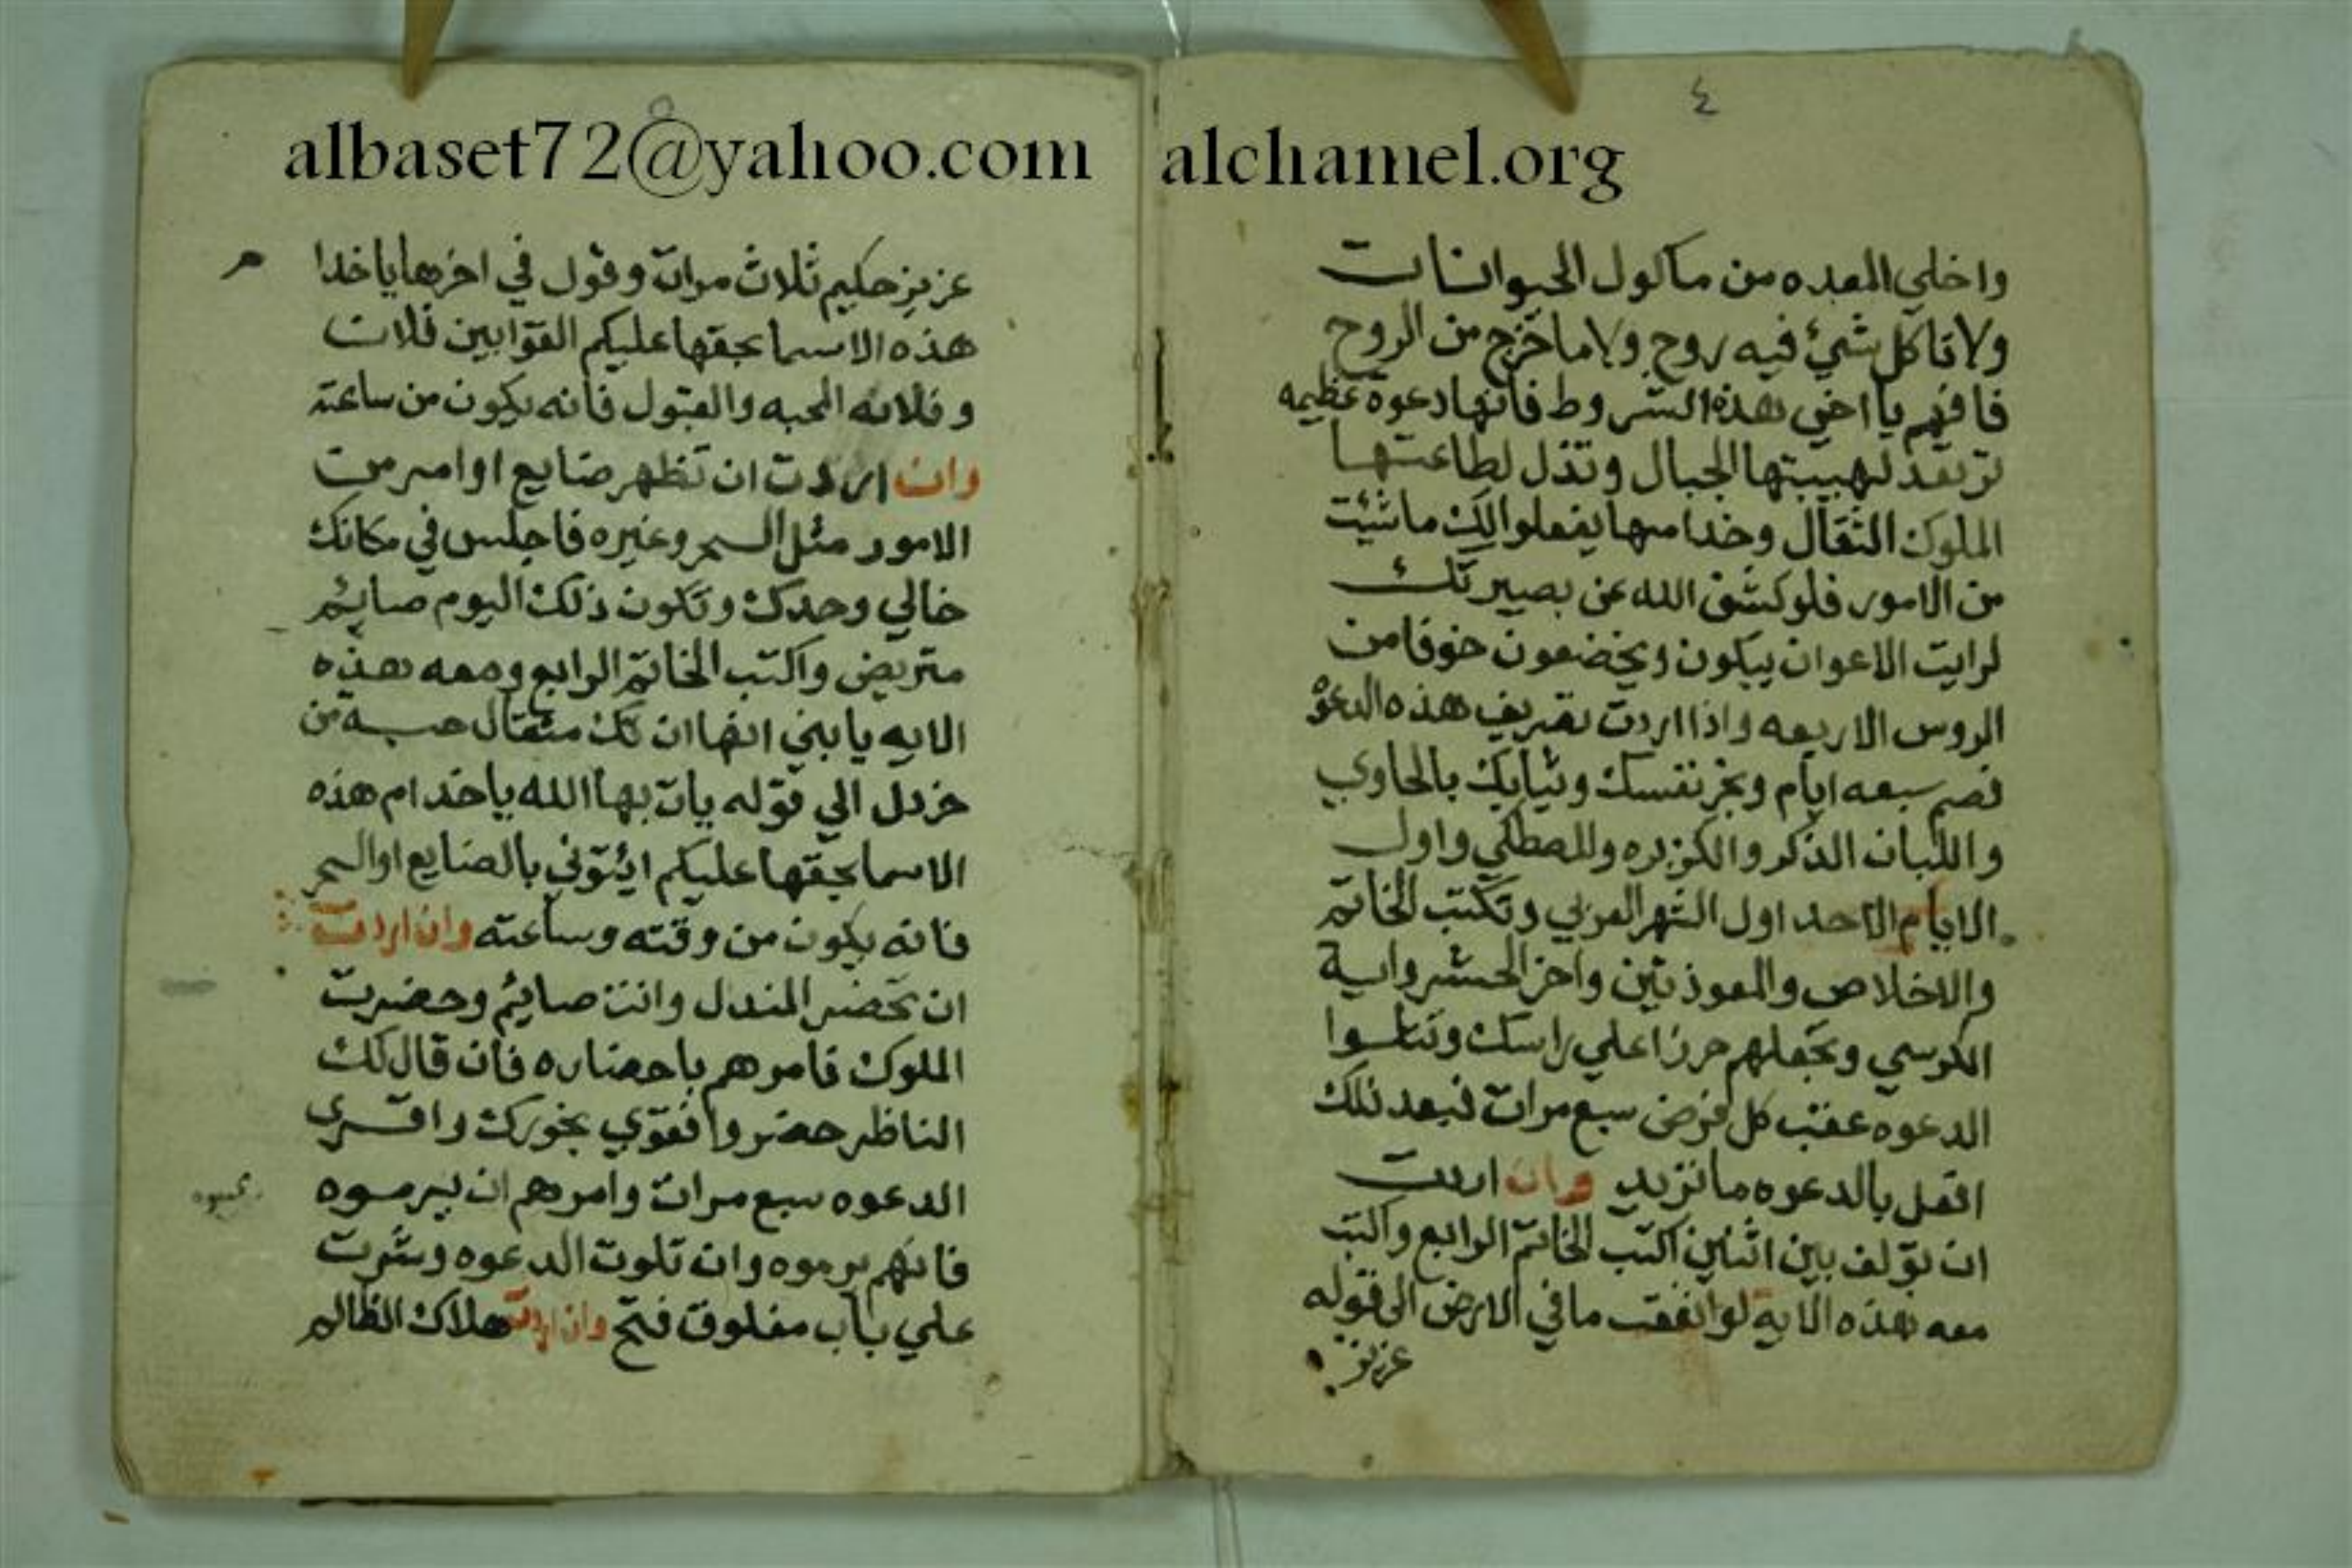 albaset72@yahoo.com
alchamel.org
٤
واخلي المعده من ماكول الحيوانات
ولا تاكل شيئ فيه روح ولا ما خرج من الروح
فافهم يا اخي هذه الشروط فانها دعوة عظيمه
ترتعد لهيبتها الجبال وتذل لطاعتها
الملوك الثقال وخدامها يفعلوا لك ما شيئت
من الامور فلو كشف الله عن بصيرتك
لرايت الاعوان يبكون ويخضعون خوفا من
الروس الاربعه واذا اردت تصريف هذه الدعوة
فصم سبعه ايام وبخر نفسك وثيابك بالحاوي
واللبان الذكر والكزبره والمصطكي واول
الايام الاحد اول الشهر العربي وتكتب الخاتم
والاخلاص والمعوذتين واخر الحشر واية
الكرسي وتجعلهم حرزا علي راسك وتتلوا
الدعوه عقب كل فرض سبع مرات فبعد ذلك
افعل بالدعوه ما تريد وان اردت
ان تولف بين اثنين اكتب الخاتم الرابع واكتب
معه هذه الاية لو انفقت ما في الارض الي قوله
عزيز
عزيز حكيم ثلاث مرات وقول في اخرها يا خدا
م
هذه الاسما بحقها عليكم القوا بين فلان
وفلانه المحبه والقبول فانه يكون من ساعته
وان اردت ان تظهر ضايع او امر من
الامور مثل السحر وغيره فاجلس في مكانك
خالي وحدك وتكون ذلك اليوم صايم
متريض واكتب الخاتم الرابع ومعه هذه
الايه يا بني انها ان تك مثقال حبة من
خردل الي قوله يات بها الله يا خدام هذه
الاسما بحقها عليكم ايئتوني بالضايع او السحر
فانه يكون من وقته وساعته وان اردت
ان تحضر المندل وانت صايئم وحضرت
الملوك فامرهم باحضاره فان قال لك
الناظر حضروا فقوي بخورك واقري
الدعوه سبع مرات وامرهم ان يرموه
فانهم يرموه وان تلوت الدعوه وشرت
علي باب مغلوق فتح وان اردت هلاك الظالم